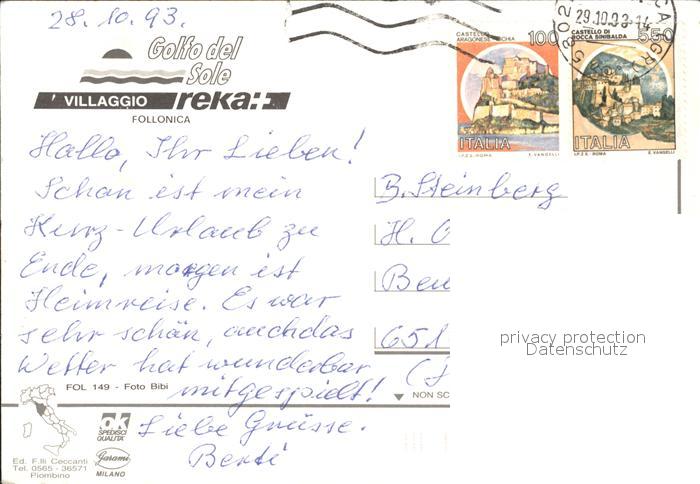 28.10.93.
Golfo del
Sole
VILLAGGIO reka
FOLLONICA
Hallo, Ihr Lieben!
Schon ist mein
Kurz-Urlaub zu
Ende, morgen ist
Heimreise. Es war
sehr schön, auch das
Wetter hat wunderbar
mitgespielt!
Liebe Grüsse.
Berti
CASTELLO
ARAGONESE
100
ITALIA
I.P.Z.S. ROMA E. VANGELLI
CASTELLO DI
ROCCA SINIBALDA
550
ITALIA
I.P.Z.S. ROMA E. VANGELLI
29.10.93-14
B. Steinberg
H.
Ben
651
privacy protection
Datenschutz
FOL 149 - Foto Bibi
NON SC
ok
SPEDISCI
QUALITA'
Garami
MILANO
Ed. F.lli Ceccanti
Tel. 0565 - 36571
Piombino